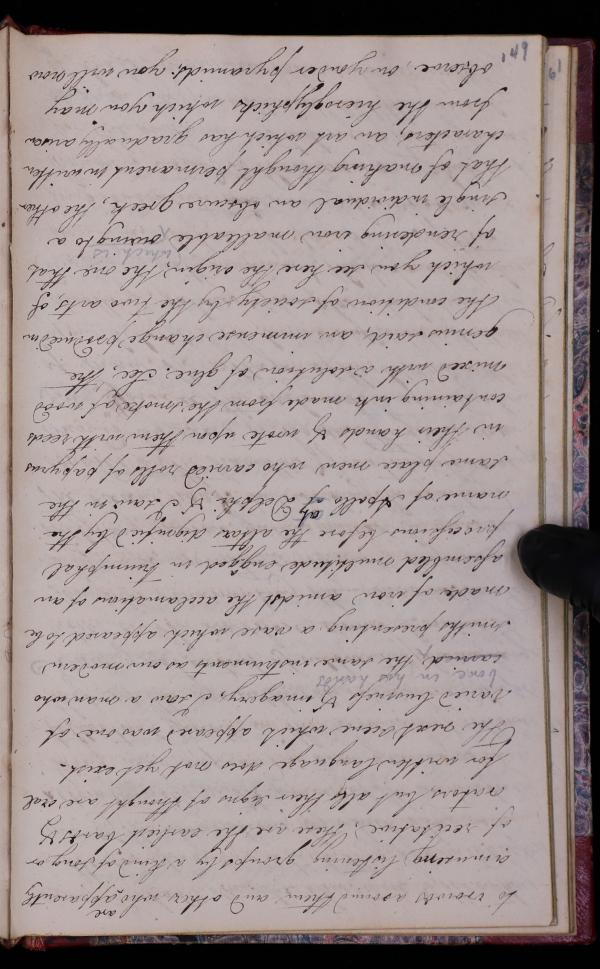 149
to crowds around them, and others who are apparently
amusing listening groups by a kind of song or
of recitative. These are the earliest bards &
orators, but all their signs of thought are oral
for written language does not yet exist.-
The next scene which appeared was one of
varied business & imagery. I saw a man who
carried bore in his hands the same instruments as our modern
smiths presenting a vase which appeared to be
made of iron amidst the acclamations of an
assembled multitude engaged in triumphal
processions before the altars dignified by the
name of Apollo at Delphi & I saw in the
same place men who carried rolls of papyrus
in their hands & wrote upon them with reeds
containing ink made from the smoke of wood
mixed with a solution of glue. See, the
genius said, an immense change produced in
the condition of society by the two arts of
which you see here the origin; the one that
of rendering iron malleable, which is owing to a
single individual an obscure greek, the other
that of making thought permanent in written
characters, an art which has gradually arisen
from the hieroglyphicks which you may
observe on yonder pyramids; you will now
61